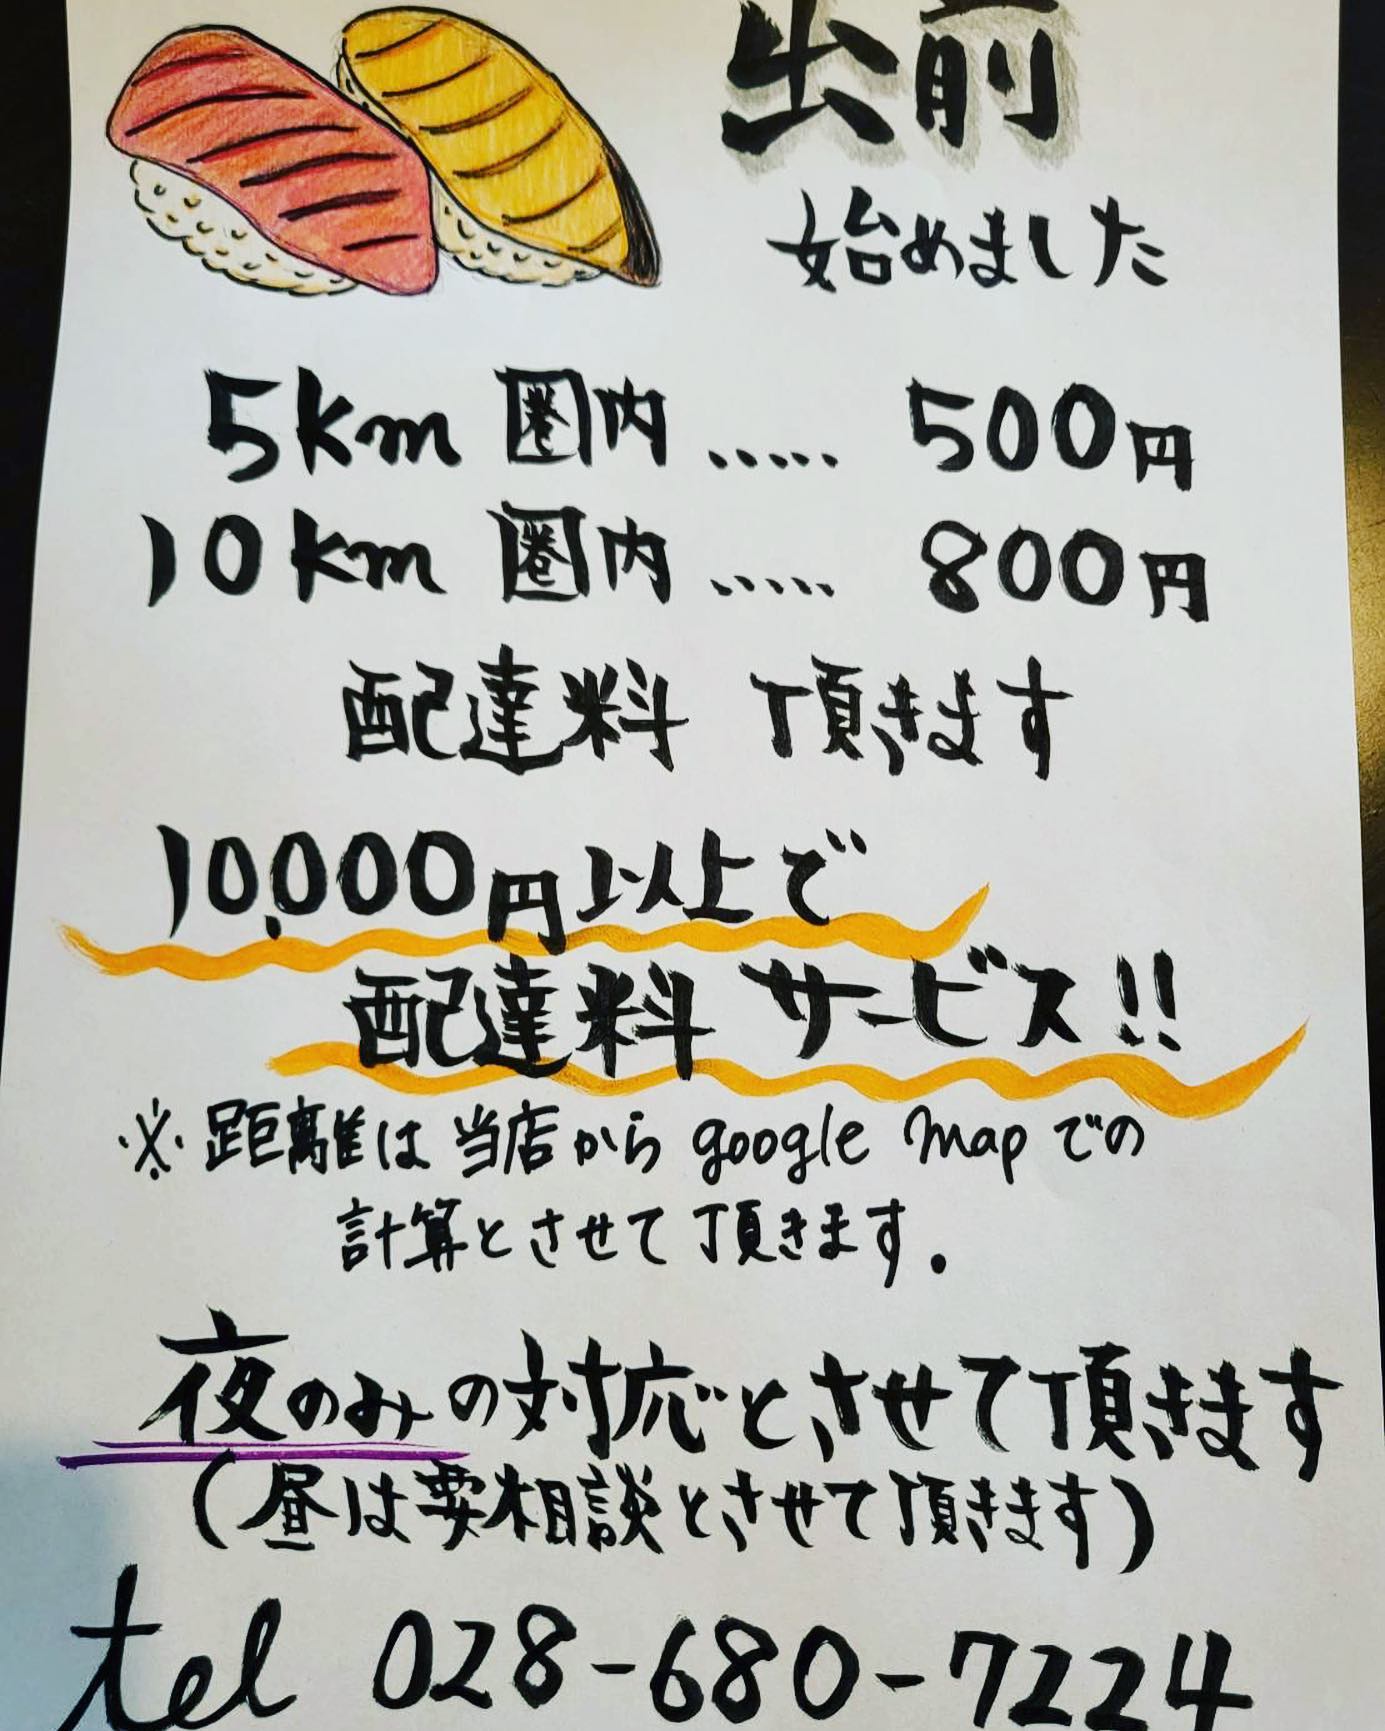 出前
始めました
5km 圏内 ..... 500円
10km 圏内 ..... 800円
配達料 頂きます
10,000円以上で
配達料 サービス!!
※距離は当店から google mapでの
計算とさせて頂きます.
夜のみの対応とさせて頂きます
(昼は要相談とさせて頂きます)
tel 028-680-7224